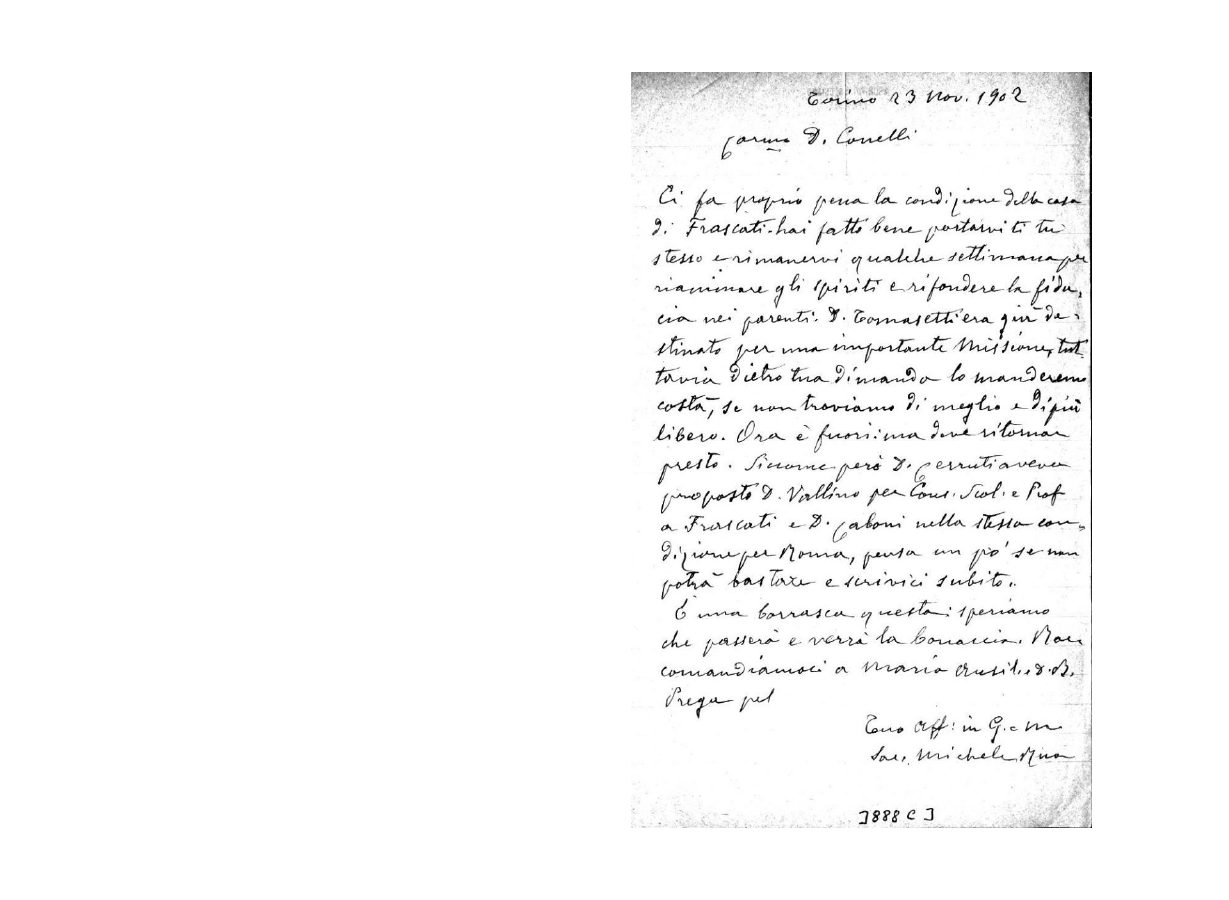 Torino 23 Nov. 1902
Carmo D. Conelli
Ci fa proprio pena la condizione della casa
di Frascati. hai fatto bene portarviti tu
stesso e rimanervi qualche settimana per
rianimare gli spiriti e rifondere la fidu,
cia nei parenti. D. Tomasetti era già de,
stinato per una importante Missione, tut,
tavia dietro tua dimanda lo manderemo
costà, se non troviamo di meglio e di più
libero. Ora è fuori: ma deve ritornar
presto. Siccome però D. Cerruti aveva
proposto D. Vallino per Cons. Scol. e Prof
a Frascati e D. Caboni nella stessa con,
dizione per Roma, pensa un po' se non
potrà bastare e scrivici subito.
È una borrasca questa: speriamo
che passerà e verrà la bonaccia. Rac,
comandiamoci a Maria Ausil. e D. B.
Prega pel
Tuo aff: in G. e M
Sac. Michele Rua
3888 C 3